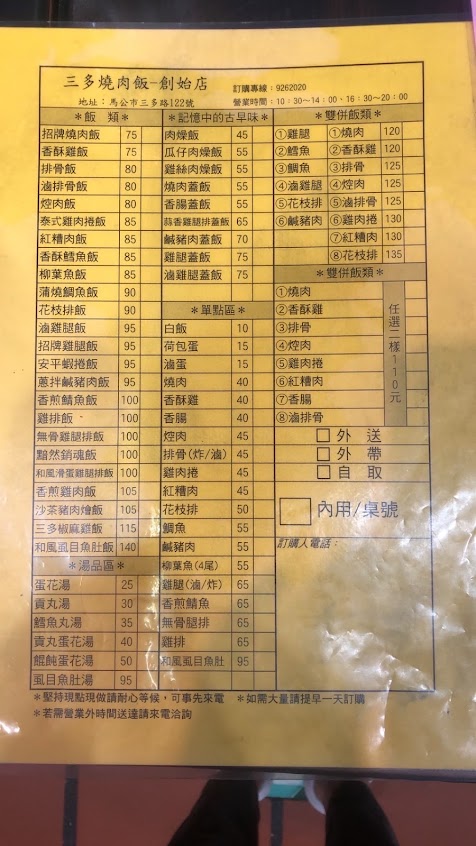 三多燒肉飯-創始店
訂購專線：9262020
地址：馬公市三多路122號
營業時間：10：30~14：00、16：30~20：00
＊飯 類＊
招牌燒肉飯 75
香酥雞飯 75
排骨飯 80
滷排骨飯 80
焢肉飯 80
泰式雞肉捲飯 85
紅糟肉飯 85
香酥鱈魚飯 85
柳葉魚飯 85
蒲燒鯛魚飯 90
花枝排飯 90
滷雞腿飯 95
招牌雞腿飯 95
安平蝦捲飯 95
蔥拌鹹豬肉飯 95
香煎鯖魚飯 100
雞排飯 100
無骨雞腿排飯 100
黯然銷魂飯 100
和風滑蛋雞腿排飯 100
香煎雞肉飯 105
沙茶豬肉燴飯 105
三多椒麻雞飯 115
和風虱目魚肚飯 140
＊湯品區＊
蛋花湯 25
貢丸湯 30
鱈魚丸湯 35
貢丸蛋花湯 40
餛飩蛋花湯 50
虱目魚肚湯 95
＊記憶中的古早味＊
肉燥飯 45
瓜仔肉燥飯 55
雞絲肉燥飯 55
燒肉蓋飯 55
香腸蓋飯 55
蒜香雞腿排蓋飯 65
鹹豬肉蓋飯 70
雞腿蓋飯 75
滷雞腿蓋飯 75
＊單點區＊
白飯 10
荷包蛋 15
滷蛋 15
燒肉 40
香酥雞 40
香腸 40
焢肉 45
排骨(炸/滷) 45
雞肉捲 45
紅糟肉 45
花枝排 50
鯛魚 55
鹹豬肉 55
柳葉魚(4尾) 55
雞腿(滷/炸) 65
香煎鯖魚 65
無骨腿排 65
雞排 65
和風虱目魚肚 95
＊雙併飯類＊
①雞腿 ①燒肉 120
②鱈魚 ②香酥雞 120
③鯛魚 ③排骨 125
④滷雞腿 ④焢肉 125
⑤花枝排 ⑤滷排骨 125
⑥鹹豬肉 ⑥雞肉捲 130
⑦紅糟肉 130
⑧花枝排 135
＊雙併飯類＊
①燒肉
②香酥雞
③排骨
④焢肉
⑤雞肉捲
⑥紅糟肉
⑦香腸
⑧滷排骨
任選二樣110元
□外 送
□外 帶
□自 取
□內用/桌號
訂購人電話：
＊堅持現點現做請耐心等候，可事先來電 ＊如需大量請提早一天訂購
＊若需營業外時間送達請來電洽詢